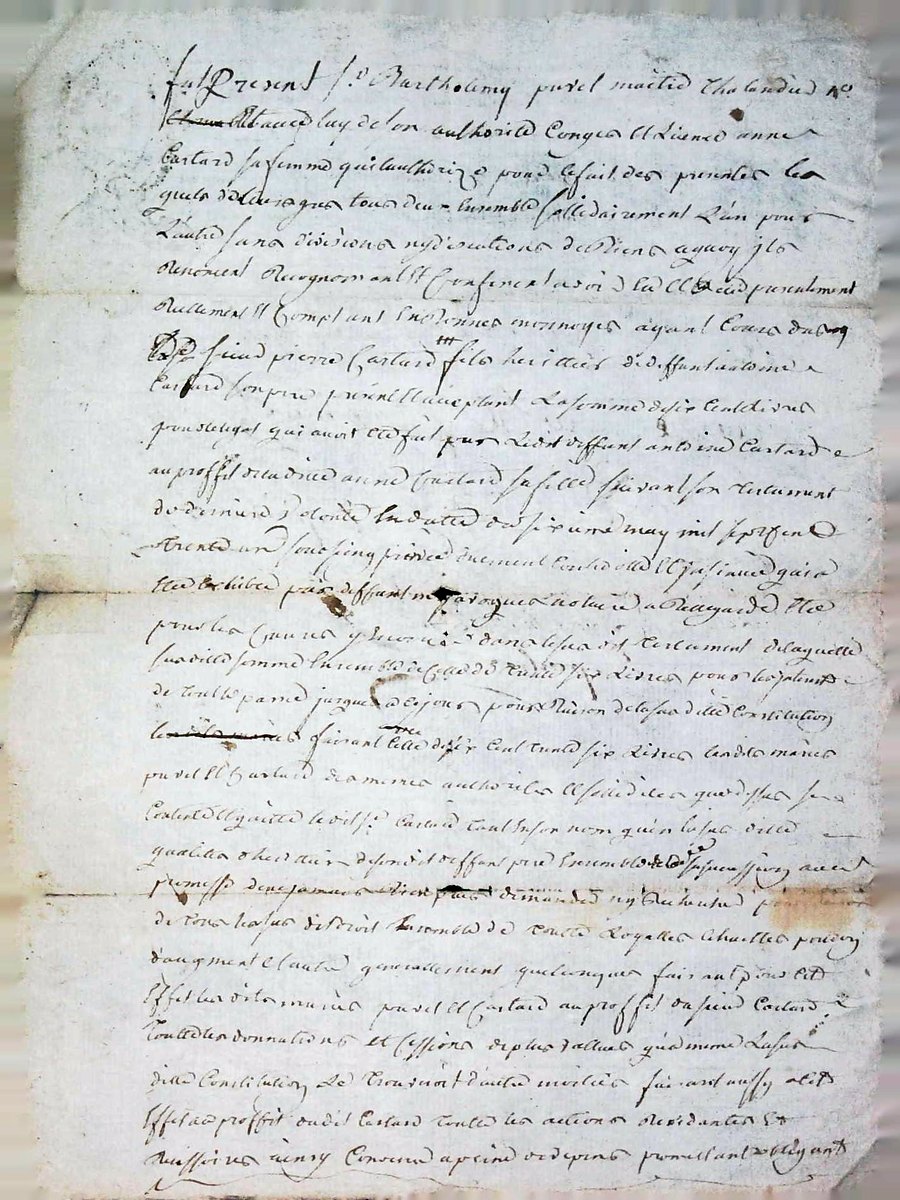 fut Present Sr Barthelemy puvel maitre Chalandre
avec luy de son authorité Conges et Licence anne
Castard sa femme qu'il authorize pour le fait des presentes les
quels de leurs gres tous deux Ensemble sollidairement L'un pour
L'autre sans divisions ny discutions de Biens a quoy jls
Renoncent Recognoissant et Confessent avoir Eu et Receu presentement
Reellement et Comptant En Bonnes monnoyes ayant Cours
sieur pierre Castard fils heritier de deffunt antoine
Castard son pere present et aceptant La somme de six Cent Livres
pour le legat qui avoit eté fait par Ledit deffunt antoine Castard
au proffit de ladite anne Castard sa fille suivant son testament
de derniere volonté En datte du sixieme may mil sept Cent
trente un sous seing privé
eté Exhibé par deffunt notaire a Beauregard Et
pour les Causes y Enoncées dans le susdit testament de laquelle
susditte somme Ensemble de Celle de trente six Livres pour les jnterets
de tout le passé jusques a ce jour pour Raison de la susditte Constitution
faisant Celle de six Cent trente six Livres lesdits mariés
puvel et Castard des memes authorités et sollidités que dessus se
Contentent et quitte ledit sr Castard tant En son nom qu'en la susditte
qualité d'heritier de sondit deffunt pere Ensemble de la susd succession avec
promesse de ne jamais Rien plus demander ny Rechercher
de tous les susdits droit Ensemble de toutte Loyalles
d'augment et autre generallement quelconques faisant pour cet
Effet lesdits mariés puvel et Castard au proffit du sieur Castard
Touttes les donnations et Cessions de plus vallues quand meme La sus
ditte Constitution Se trouveroit d'autre moitié faisant aussy a Cet
Effet au proffit dudit Castard toutte les actions Rescidantes Et
Rescissoires ainsy Convenu a peine de depens promettant obligeant